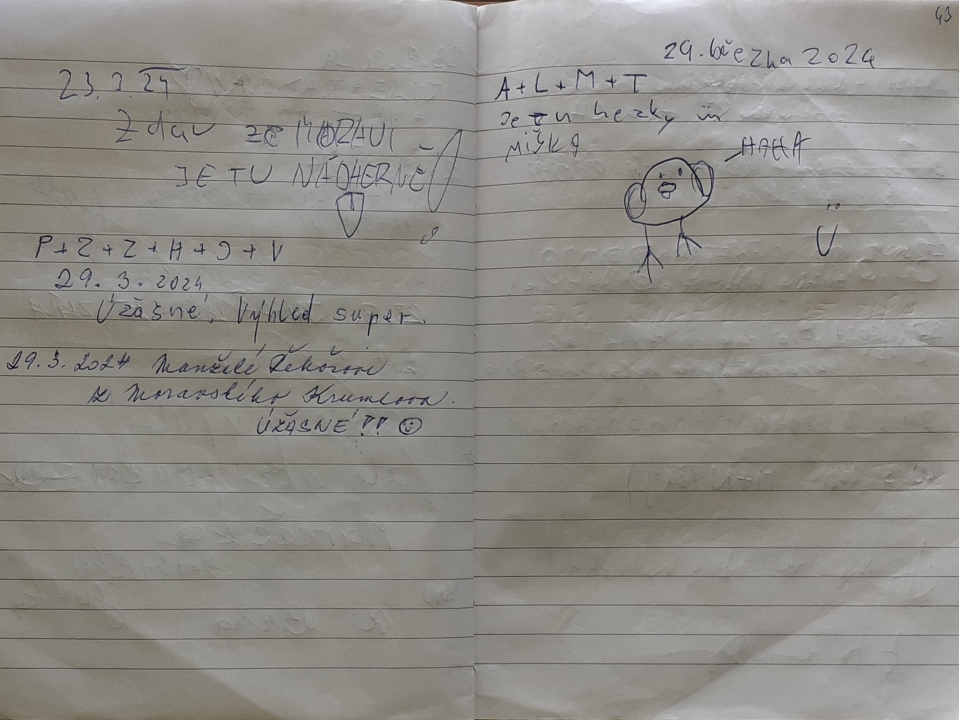 23.3.24
Zdar ze MORAVI
JE TU NÁDHERNĚ
P+Z+Z+H+J+V
29. 3. 2024
Úžásné, Výhled super.
29.3.2024 Manželé Řeřiřovi
z Moravského Krumlova.
ÚŽASNÉ!!
43
29. března 2024
A+L+M+T
Je tu hezky
MIŠKA
HAHA